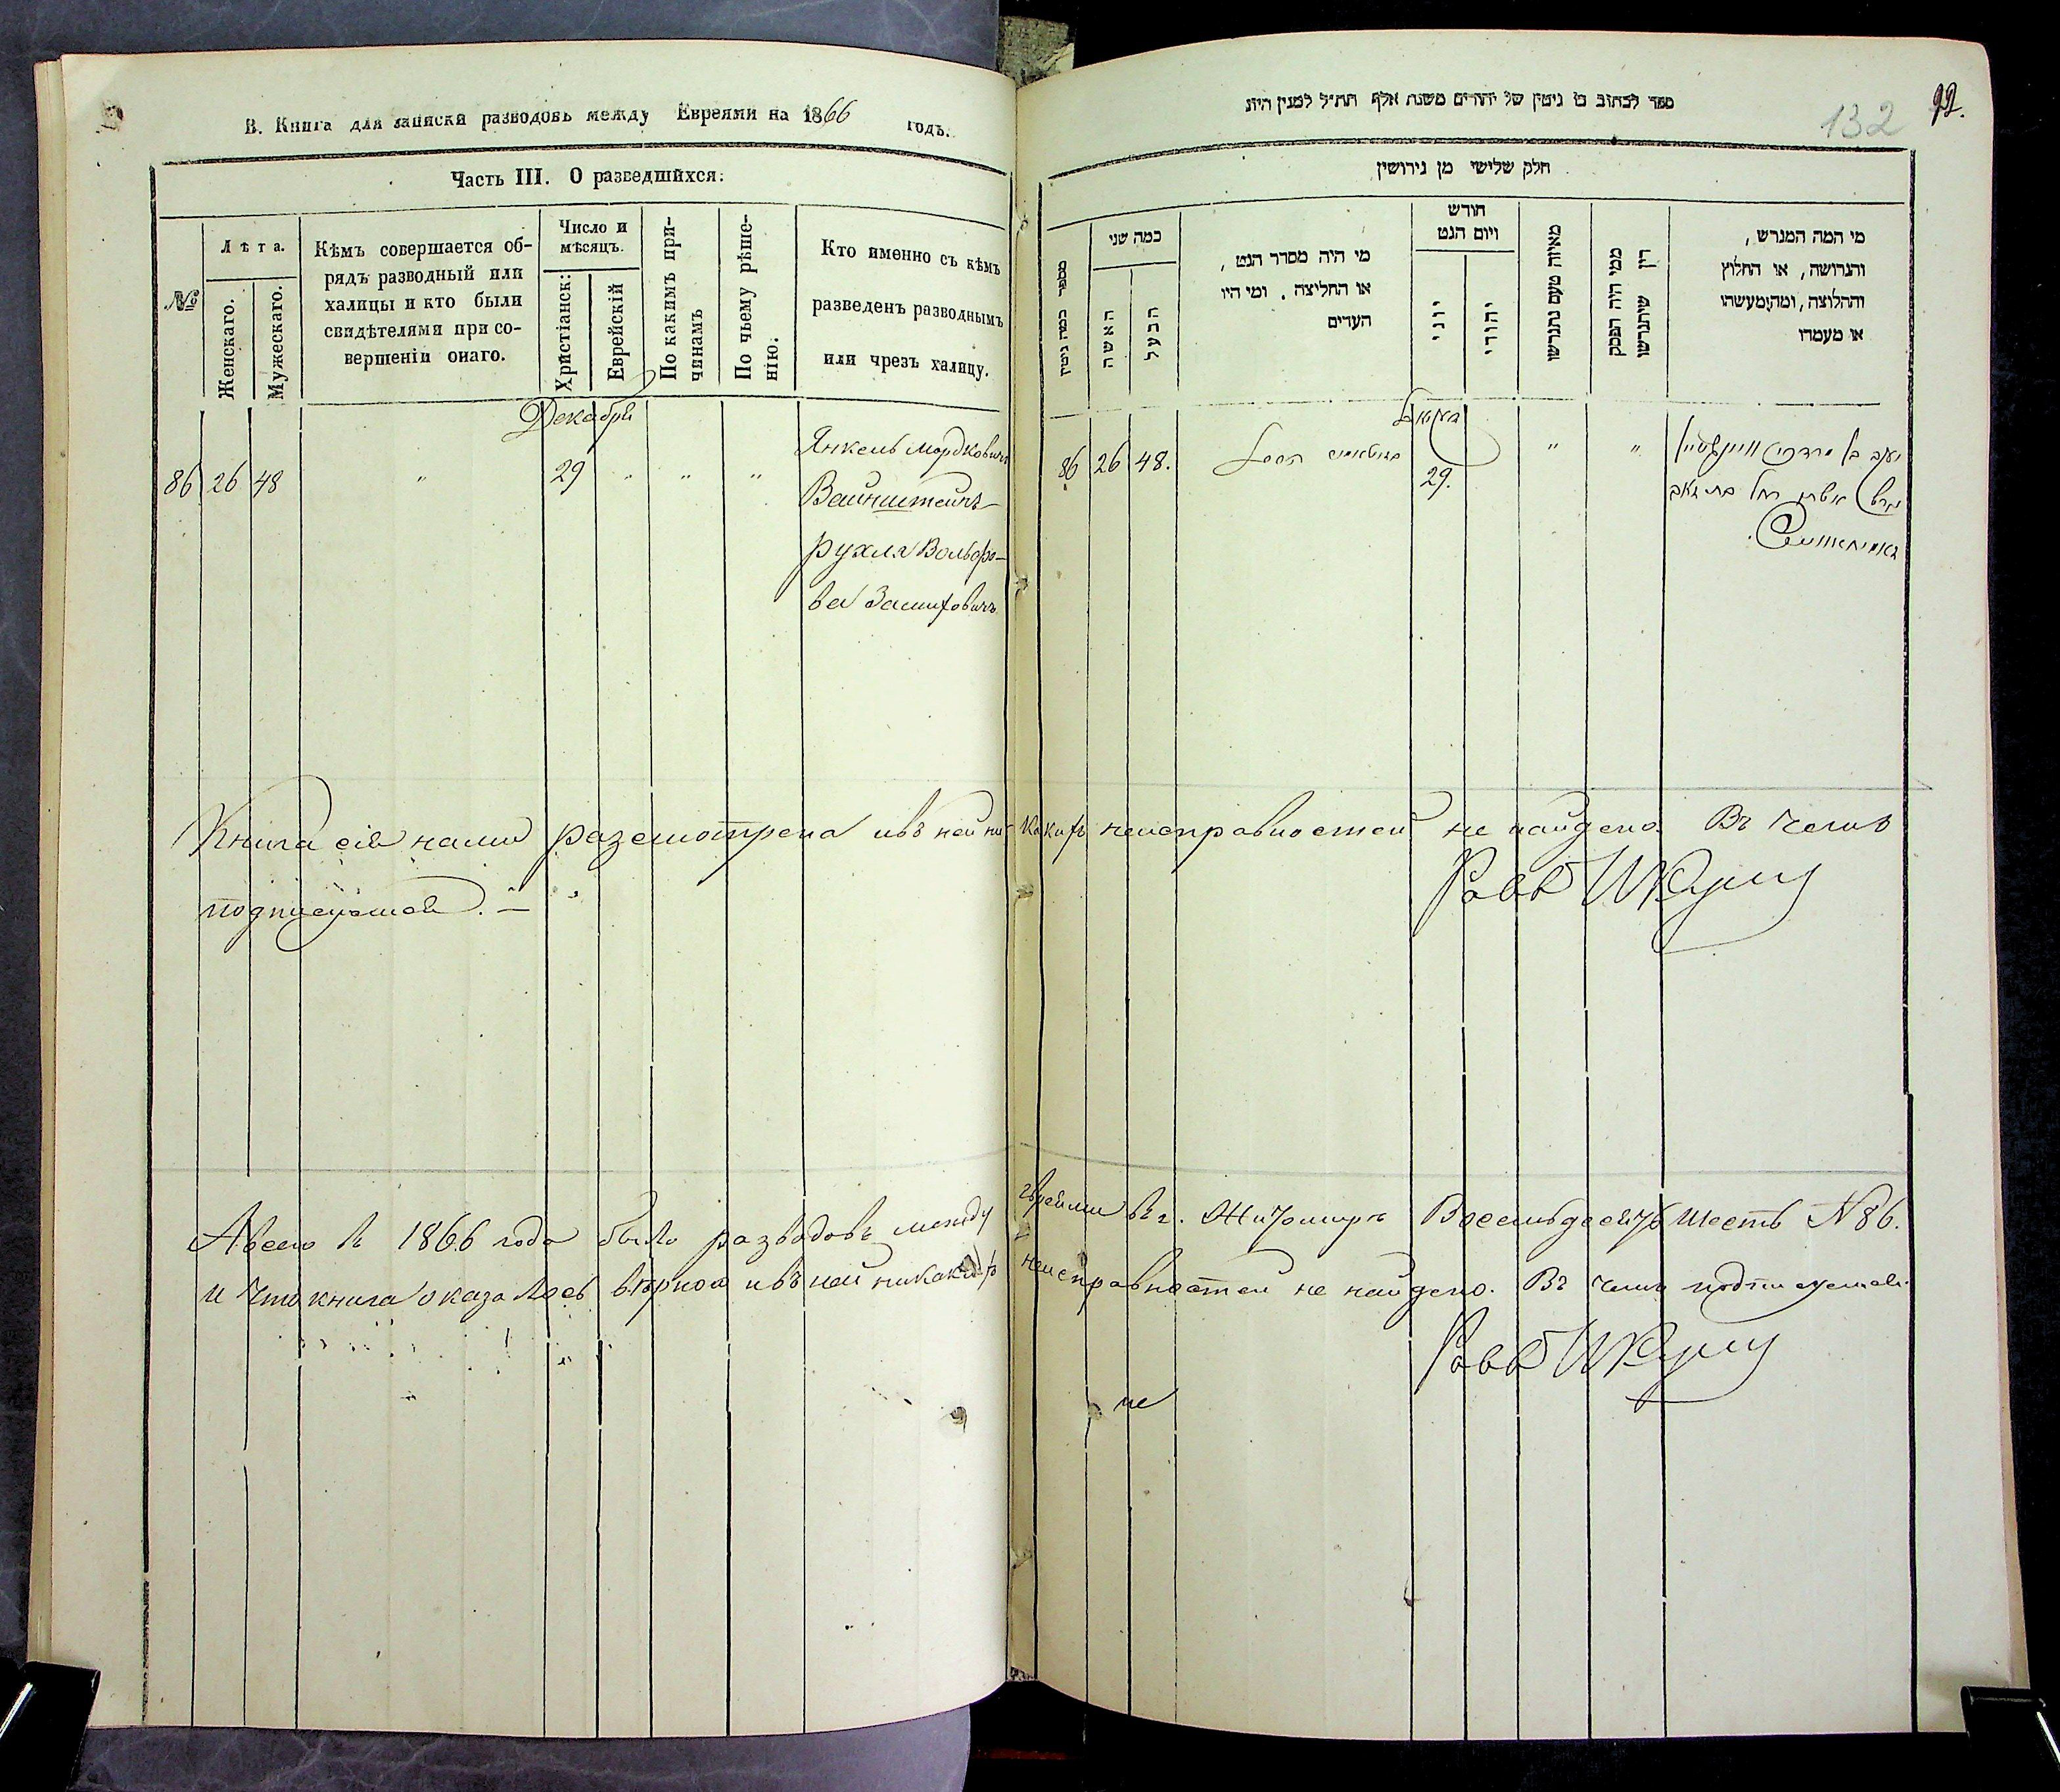 В. Книга для записки разводовъ между Евреями на 1866 годъ.
Часть III. О разведшихся.
№
Лѣта.
Женскаго.
Мужескаго.
Кѣмъ совершается об-
рядъ разводный или
халицы и кто были
свидѣтелями при со-
вершеніи онаго.
Число и
мѣсяцъ.
Христіанск:
Еврейскій
По какимъ при-
чинамъ
По чьему рѣше-
нію.
Кто именно съ кѣмъ
разведенъ разводнымъ
или чрезъ халицу.
Декабря
86 26 48 " 29 " " "
Янкель Мордковичъ
Вайнштейнъ
Рухля Вольфо-
ва
132
92.
ספר לכתוב בו גיטין של יהודים משנת אלף תת״ל למנין היוני
חלק שלישי מן גירושין
מספר בסדר גיטין
כמה שני
האשה
הבעל
מי היה מסדר הגט,
או החליצה. ומי היו
העדים
חודש
ויום הגט
יוני
יהודי
מאיזה טעם נתגרשו
ממי היה הפסק
דין שיתגרשו
מי המה המגרש,
והגרושה, או החלוץ
והחלוצה, ומה מעשהו
או מעמדו
86 26 48. 29. " "
יעקב בן מרדכי וויינשטיין
גירש אשתו רחל בת זאב
Книга сія нами разсмотрена и въ ней ни какихъ неисправностей не найдено. Въ чемъ
подписуемся. —
А всего въ 1866 года было разводовъ между Евреями въ г. Житомирѣ Восемьдесятъ Шесть N 86.
и что книга оказалось вѣрною и въ ней никакихъ неисправностей не найдено. Въ чемъ подписуемся.
не